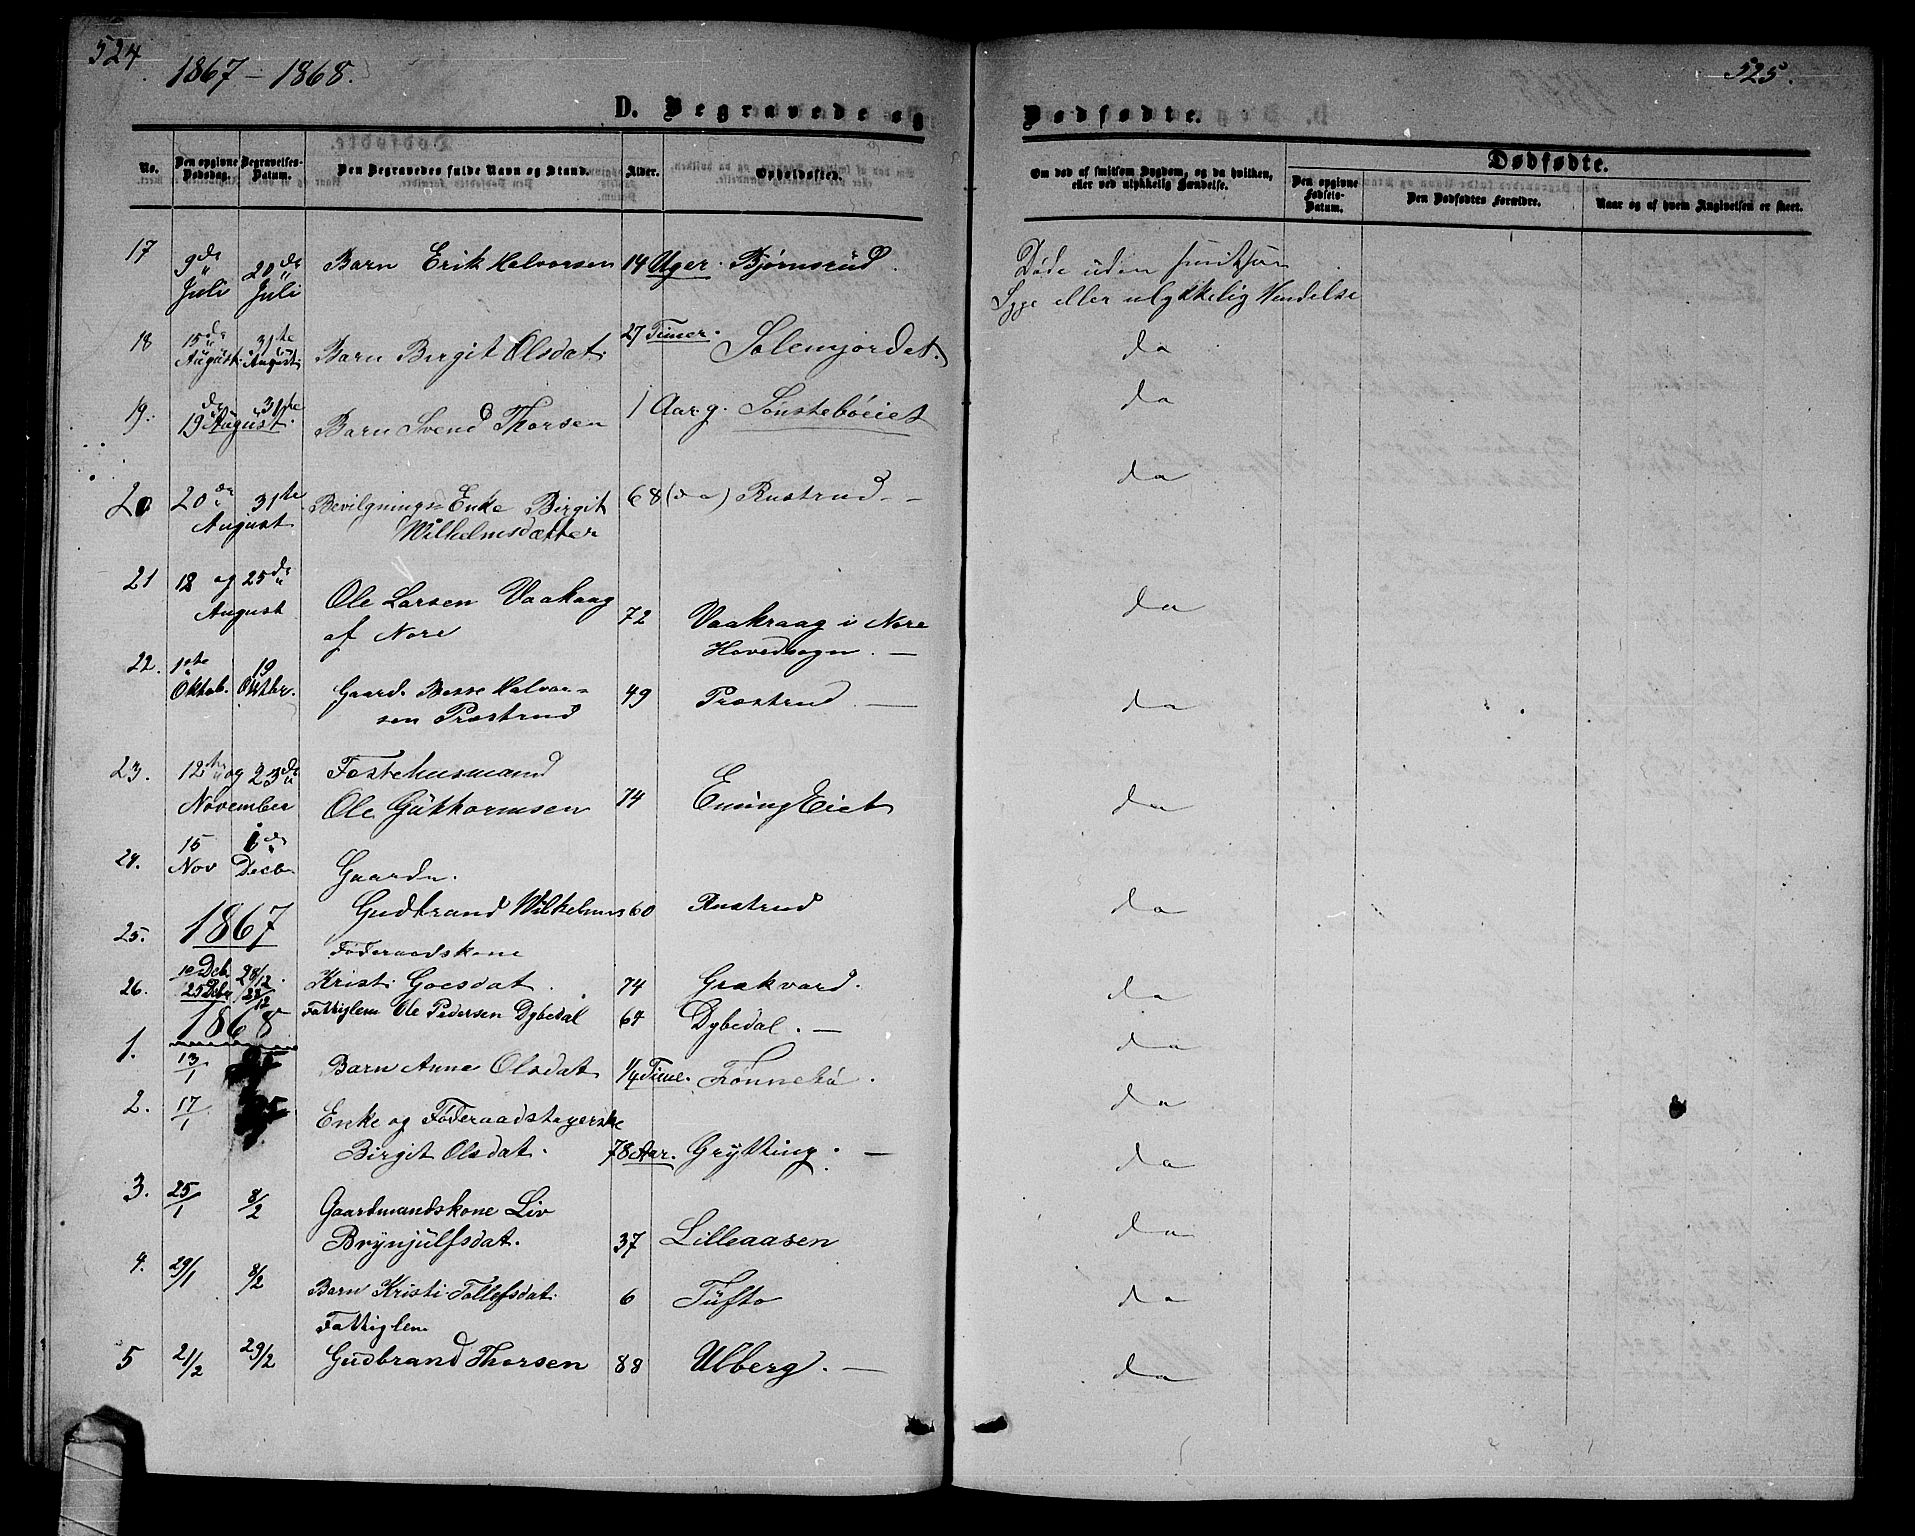 524.
1867-1868.
525.
D. Begravede og
Dødfødte.
No.
Den opgivne Dødsdag.
Begravelses-Datum.
Den Begravedes fulde Navn og Stand.
Alder.
Opholdssted.
Om død af smitsom Sygdom, og da hvilken,
eller ved ulykkelig Hændelse.
Dødfødte.
Den opgivne Fødsels-Datum.
Den Dødfødtes Forældre.
Naar og af hvem Angivelsen er skeet.
17 9de Juli 20de Juli Barn Erik Halvorsen 14 Uger. Bjørnsrüd.
Døde uden smitsom
Syge eller ulykkelig Hendelse
18 15de August 31te August Barn Birgit Olsdat. 27 Timer. Solemjordet. da
19. 19de 31te August. Barn Svend Thorsen 1 Aar g. Sønstebøeiet da
20 20de 31te Bevilgnings-Enke Birgit 68 (da) Rustrud - da
August Wilhelmsdatter
21 18 og 25de August Ole Larsen Vaakaag 72 Vaakraag i Nore da
af Nore Hovedsogn. -
22. 1ste Oktob. 19 Oktbr. Gaard. Besse Halvor=
sen Præstrud 49 Præstrud. - da
23. 12te og 23de Fæstehusmand
November Ole Güttormsen 74 EnüngEiet da
24. 15 Nov 1de Decb Gaardm.
Gudbrand Wilhelms 60 Rustrud da
25. 1867
Føderaadskone
10 Dcb. 28/12. Kristi Goesdat. 74 Grækvard. da
26. 25 Dcbr 28/12 Fattiglem Ole Pedersen Dybedal 64 Dybedal. - da
1868
1. 13/1 Barn Anne Olsdat 1/4 Time. Tønnebø. da
2. 17/1 Enke og Føderaadstagerske
Birgit Olsdat. 78 Aar. Grytting. - da
3. 25/1 8/2 Gaardmandskone Liv
Brynjülfsdat. 37 Lilleaasen da
4. 29/1 8/2 Barn Kristi Tollefsdat. 6 Tüfto da
Fattiglem
5 21/2 29/2 Gudbrand Thorsen 88 Ulberg. - da